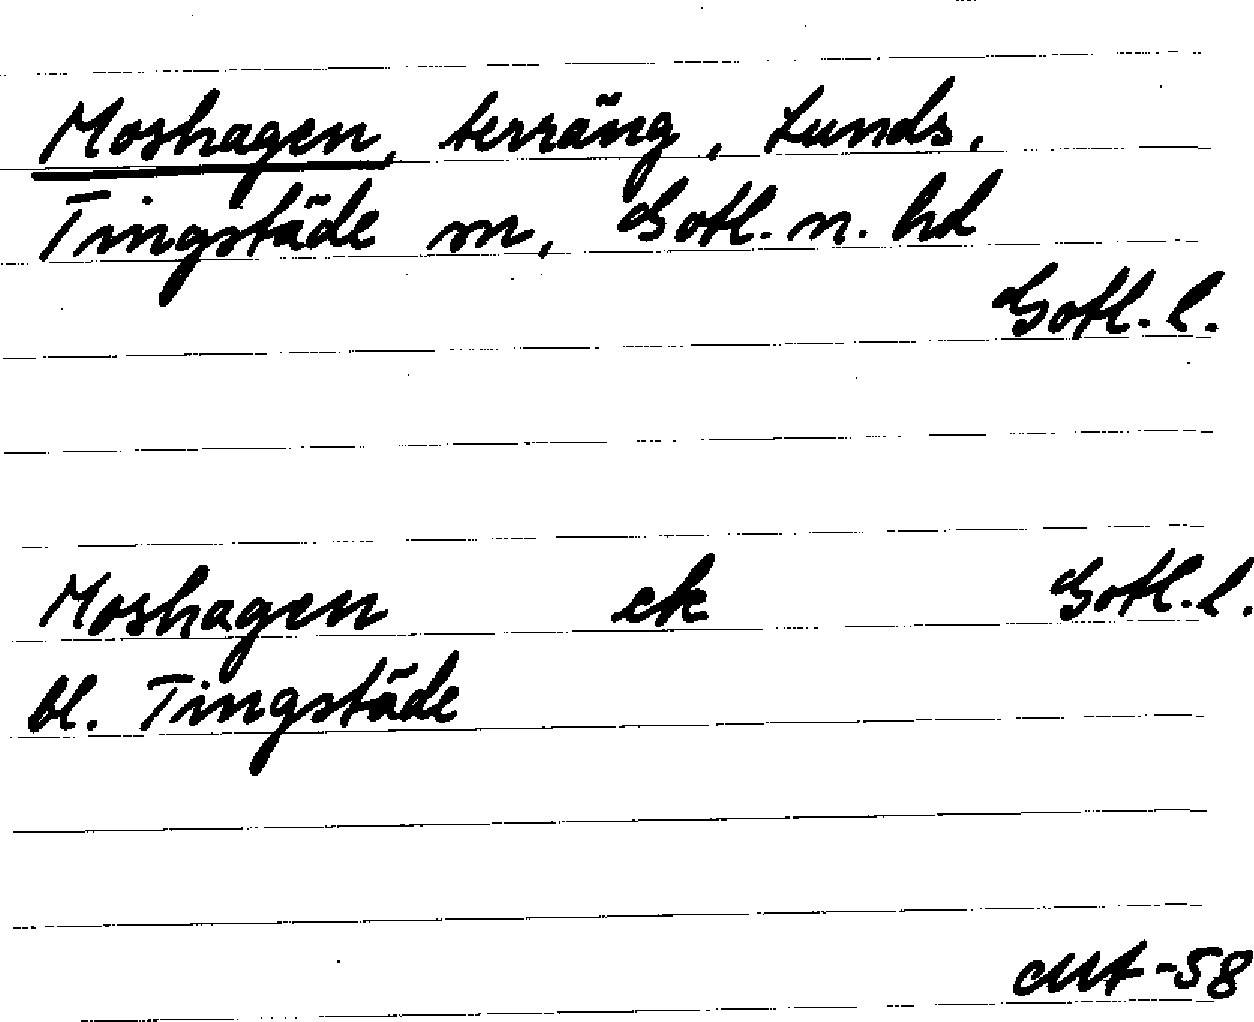 Moshagen, terräng, Lunds,
Tingstäde sn, Gotl. n. hd
Gotl. l.
Moshagen ek Gotl. l.
bl. Tingstäde
-58